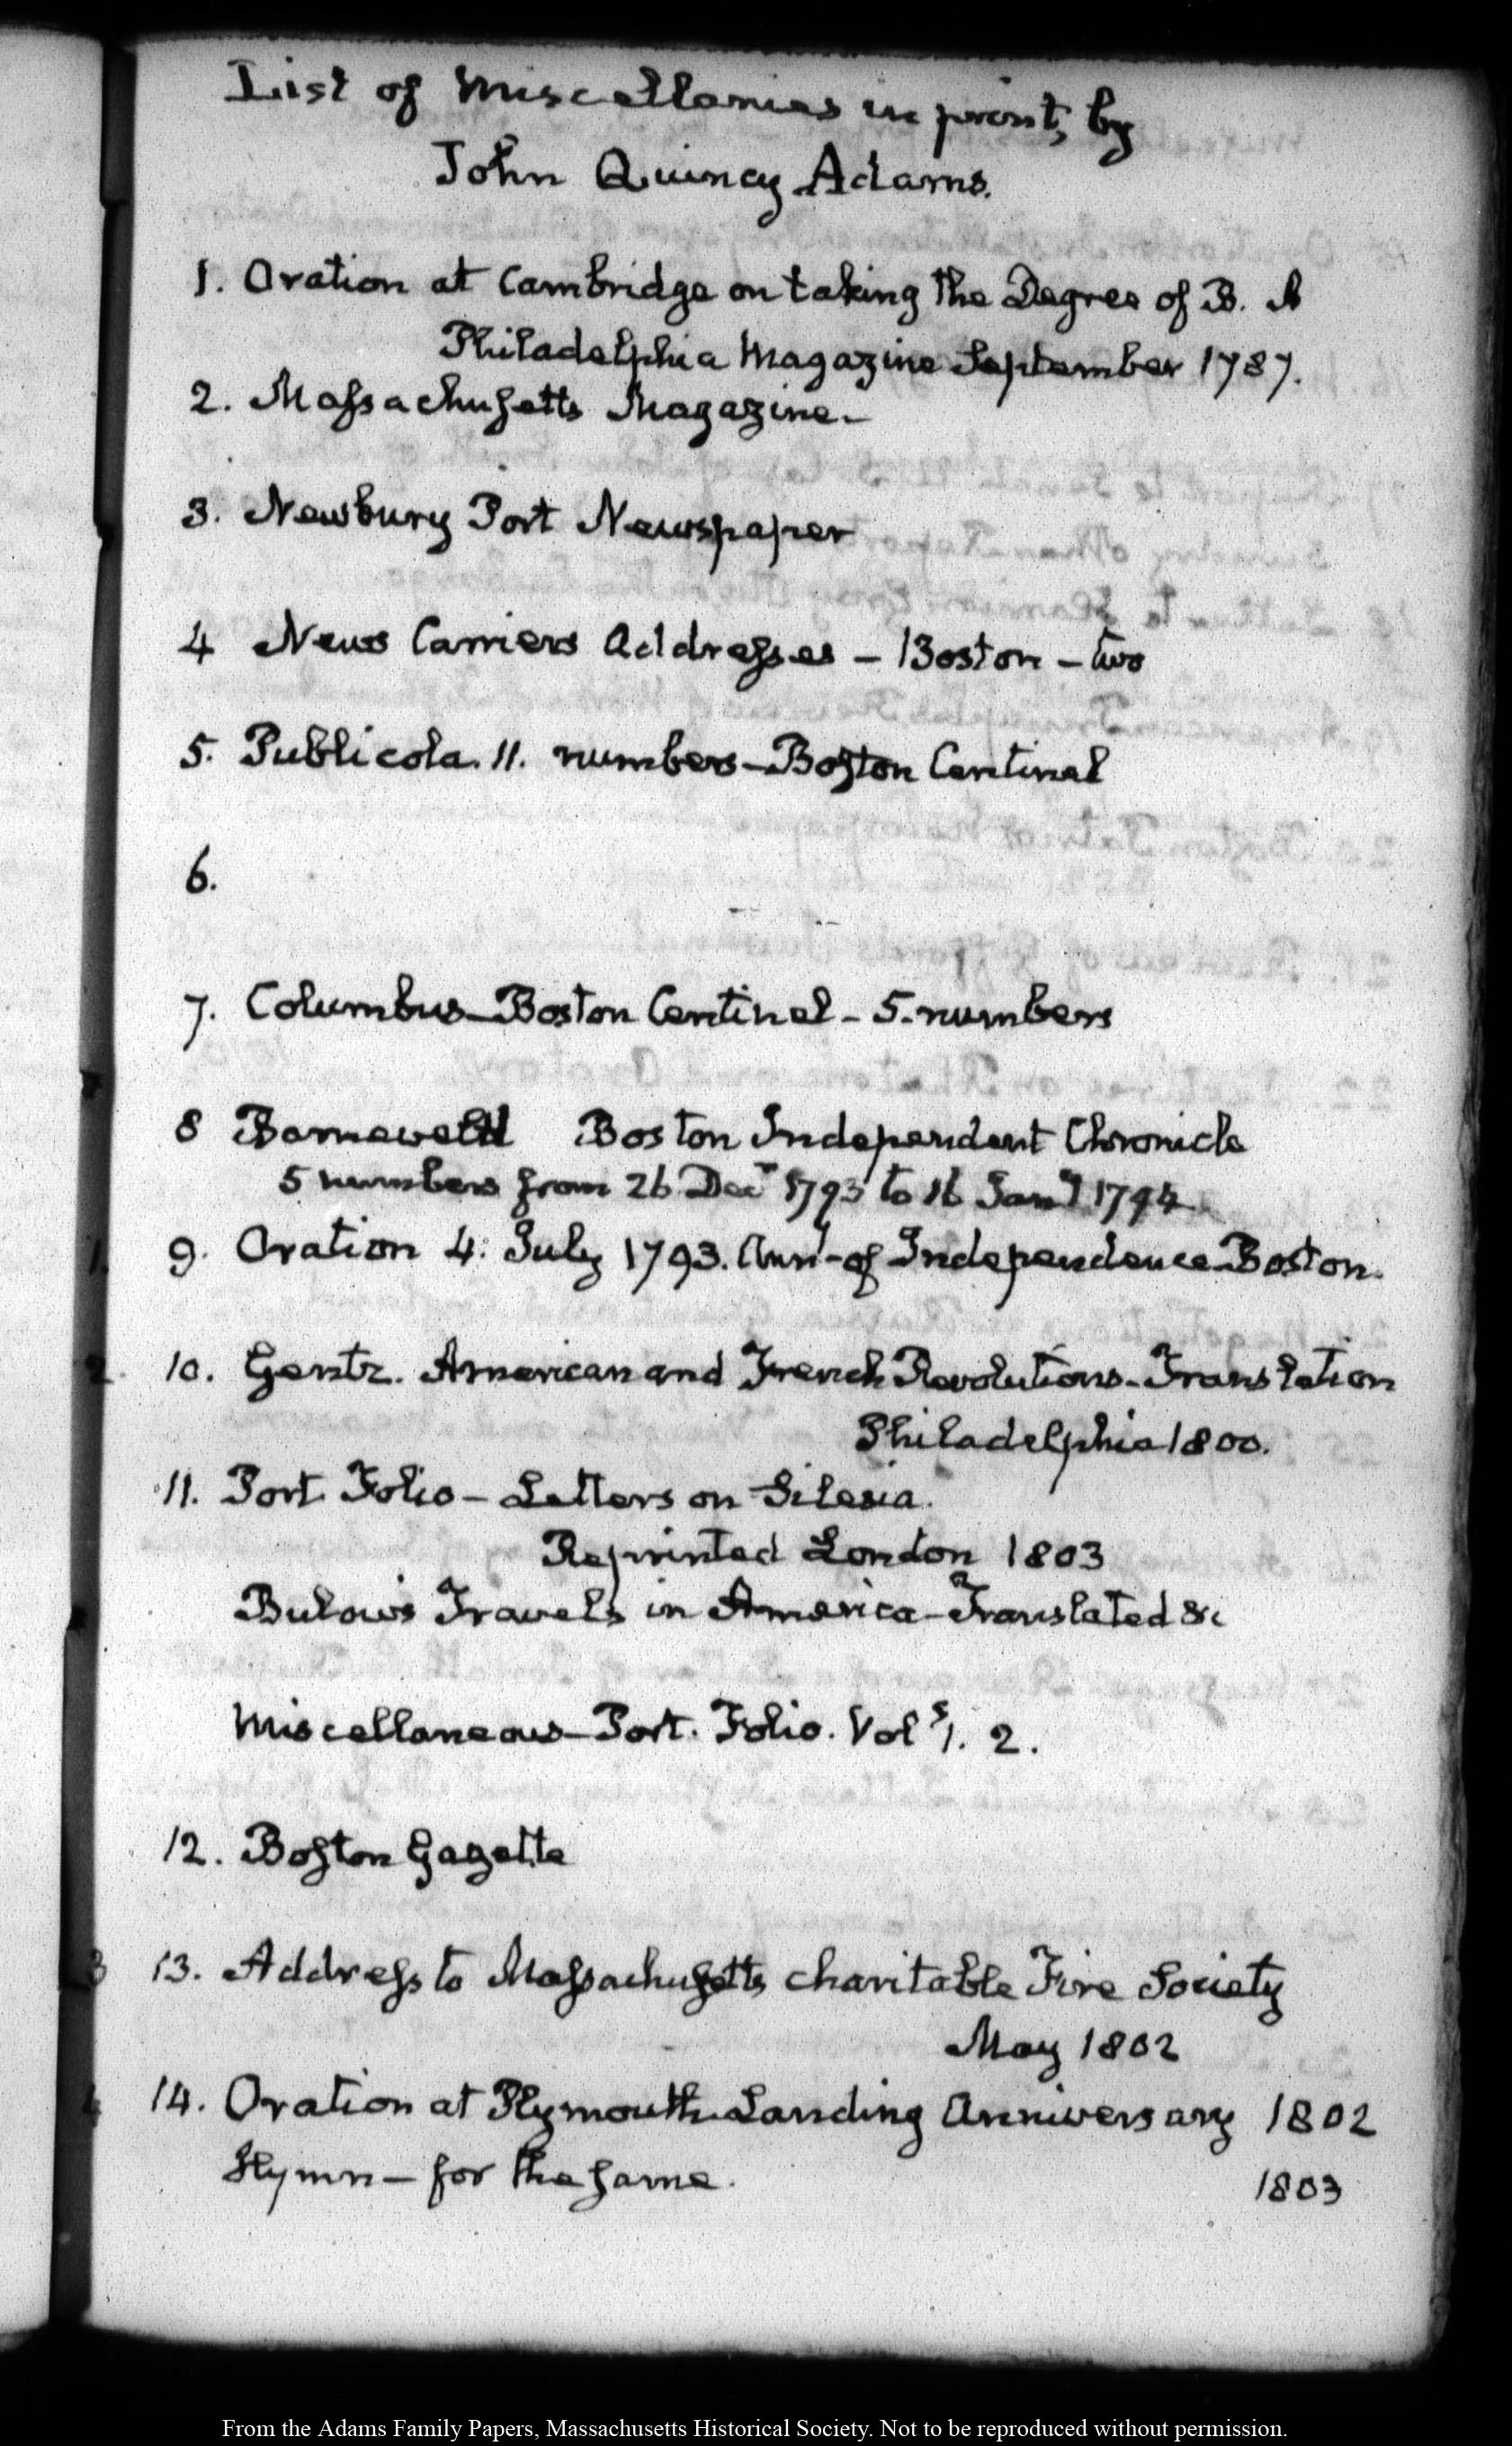 List of Miscellanies in print, by
John Quincy Adams.
1. Oration at Cambridge on taking the Degree of B. A
Philadelphia Magazine September 1787.
2. Massachusetts Magazine.
3. Newbury Port Newspaper
4 News Carriers Addresses – Boston – two
5. Publicola. 11. numbers – Boston Centinel
6.
7. Columbus – Boston Centinel – 5. numbers
8 Barneveldt Boston Independent Chronicle
5 numbers from 26 Decr 1793 to 16 Jany 1794
1. 9. Oration 4: July 1793. Anny of Independence Boston.
2. 10. Gentz. American and French Revolutions – Translation
Philadelphia 1800.
11. Port Folio – Letters on Silesia.
Reprinted London 1803
Bulow's Travels in America – Translated &c
Miscellaneous – Port. Folio. Vols 1. 2.
12. Boston Gazette
3 13. Address to Massachusetts charitable Fire Society
May 1802
4 14. Oration at Plymouth Landing Anniversary 1802
Hymn – for the same. 1803
From the Adams Family Papers, Massachusetts Historical Society. Not to be reproduced without permission.